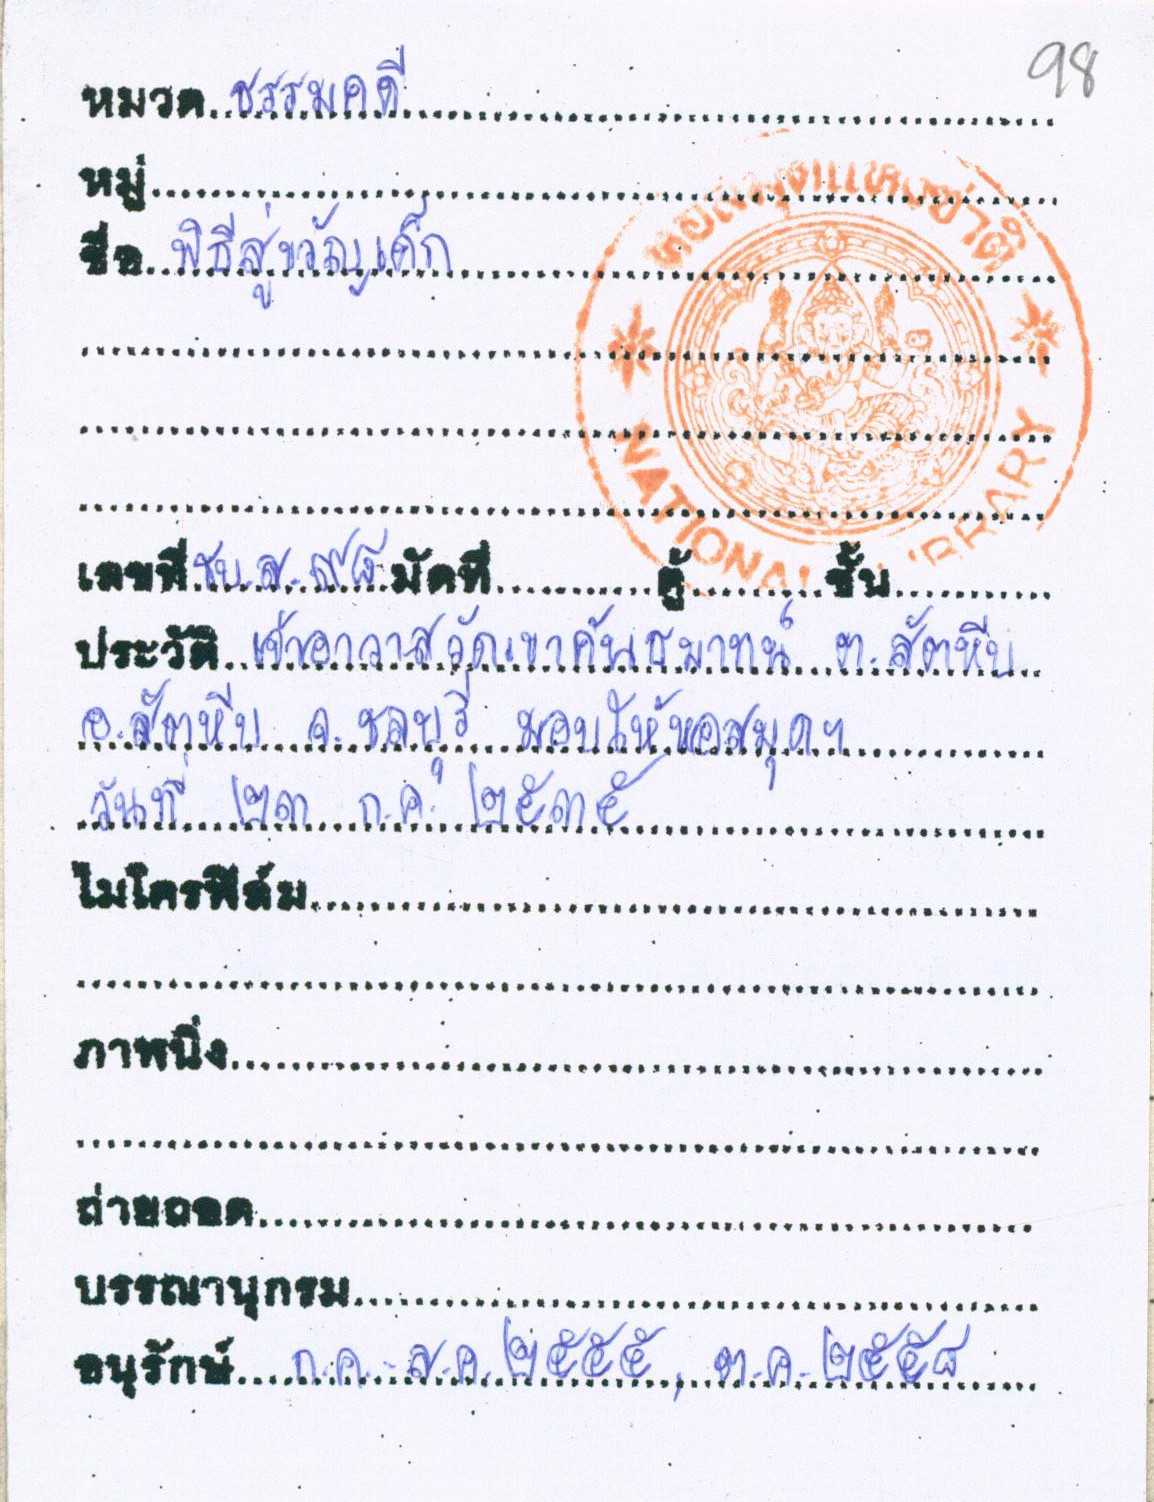 98
หมวด ธรรมคดี
หมู่
ชื่อ พิธีสู่ขวัญเด็ก
หอสมุดแห่งชาติ
NATIONAL LIBRARY
เลขที่ ชบ.ส. ๙๘ มัดที่ ตู้ ชั้น
ประวัติ เจ้าอาวาสวัดเขาคันธมาทน์ ต.สัตหีบ
อ.สัตหีบ จ.ชลบุรี มอบให้หอสมุดฯ
วันที่ ๒๓ ก.ค. ๒๕๓๕
ไมโครฟิล์ม
ภาพนิ่ง
ถ่ายถอด
บรรณานุกรม
อนุรักษ์ ก.ค.-ส.ค. ๒๕๕๕, ต.ค. ๒๕๕๘